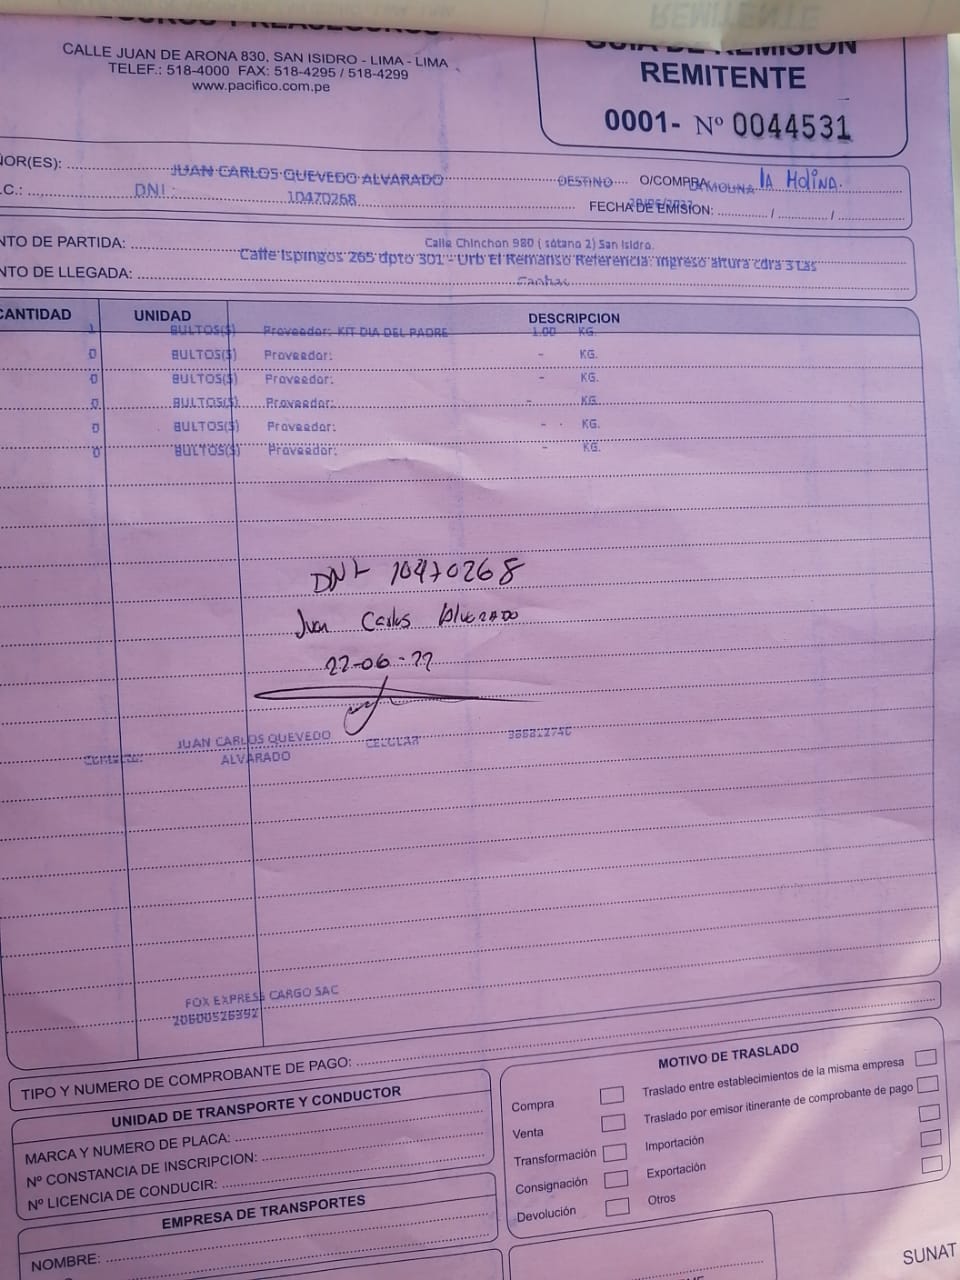 CALLE JUAN DE ARONA 830, SAN ISIDRO - LIMA - LIMA
TELEF.: 518-4000 FAX: 518-4295 / 518-4299
www.pacifico.com.pe
GUIA DE REMISION
REMITENTE
0001- Nº 0044531
ÑOR(ES): JUAN CARLOS QUEVEDO ALVARADO DESTINO O/COMPRA LA MOLINA la Molina.
.C.: DNI: 10470268 FECHA DE EMISION: / /
NTO DE PARTIDA: Calle Chinchon 980 ( sótano 2) San Isidro.
Calle Ispingos 265 dpto 301 - Urb El Remanso Referencia: Ingreso altura cdra 3 Las
NTO DE LLEGADA:
CANTIDAD UNIDAD DESCRIPCION
1 BULTOS(S) Proveedor: KIT DIA DEL PADRE 1.00 KG.
0 BULTOS(S) Proveedor: - KG.
0 BULTOS(S) Proveedor: - KG.
0 BULTOS(S) Proveedor: - KG.
0 BULTOS(S) Proveedor: - KG.
0 BULTOS(S) Proveedor: - KG.
DNI 10470268
Juan Carlos Alvarado
22-06-22
JUAN CARLOS QUEVEDO CELULAR
ALVARADO
FOX EXPRESS CARGO SAC
20600526392
TIPO Y NUMERO DE COMPROBANTE DE PAGO:
UNIDAD DE TRANSPORTE Y CONDUCTOR
MARCA Y NUMERO DE PLACA:
Nº CONSTANCIA DE INSCRIPCION:
Nº LICENCIA DE CONDUCIR:
EMPRESA DE TRANSPORTES
NOMBRE:
MOTIVO DE TRASLADO
Compra
Venta
Transformación
Consignación
Devolución
Traslado entre establecimientos de la misma empresa
Traslado por emisor itinerante de comprobante de pago
Importación
Exportación
Otros
SUNAT